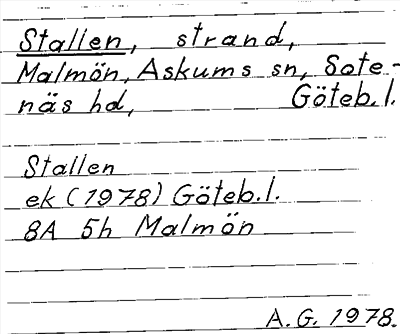 Stallen, strand,
Malmön, Askums sn, Sote-
näs hd, Göteb.l.
Stallen
ek (1978) Göteb.l.
8A 5h Malmön
A.G. 1978.